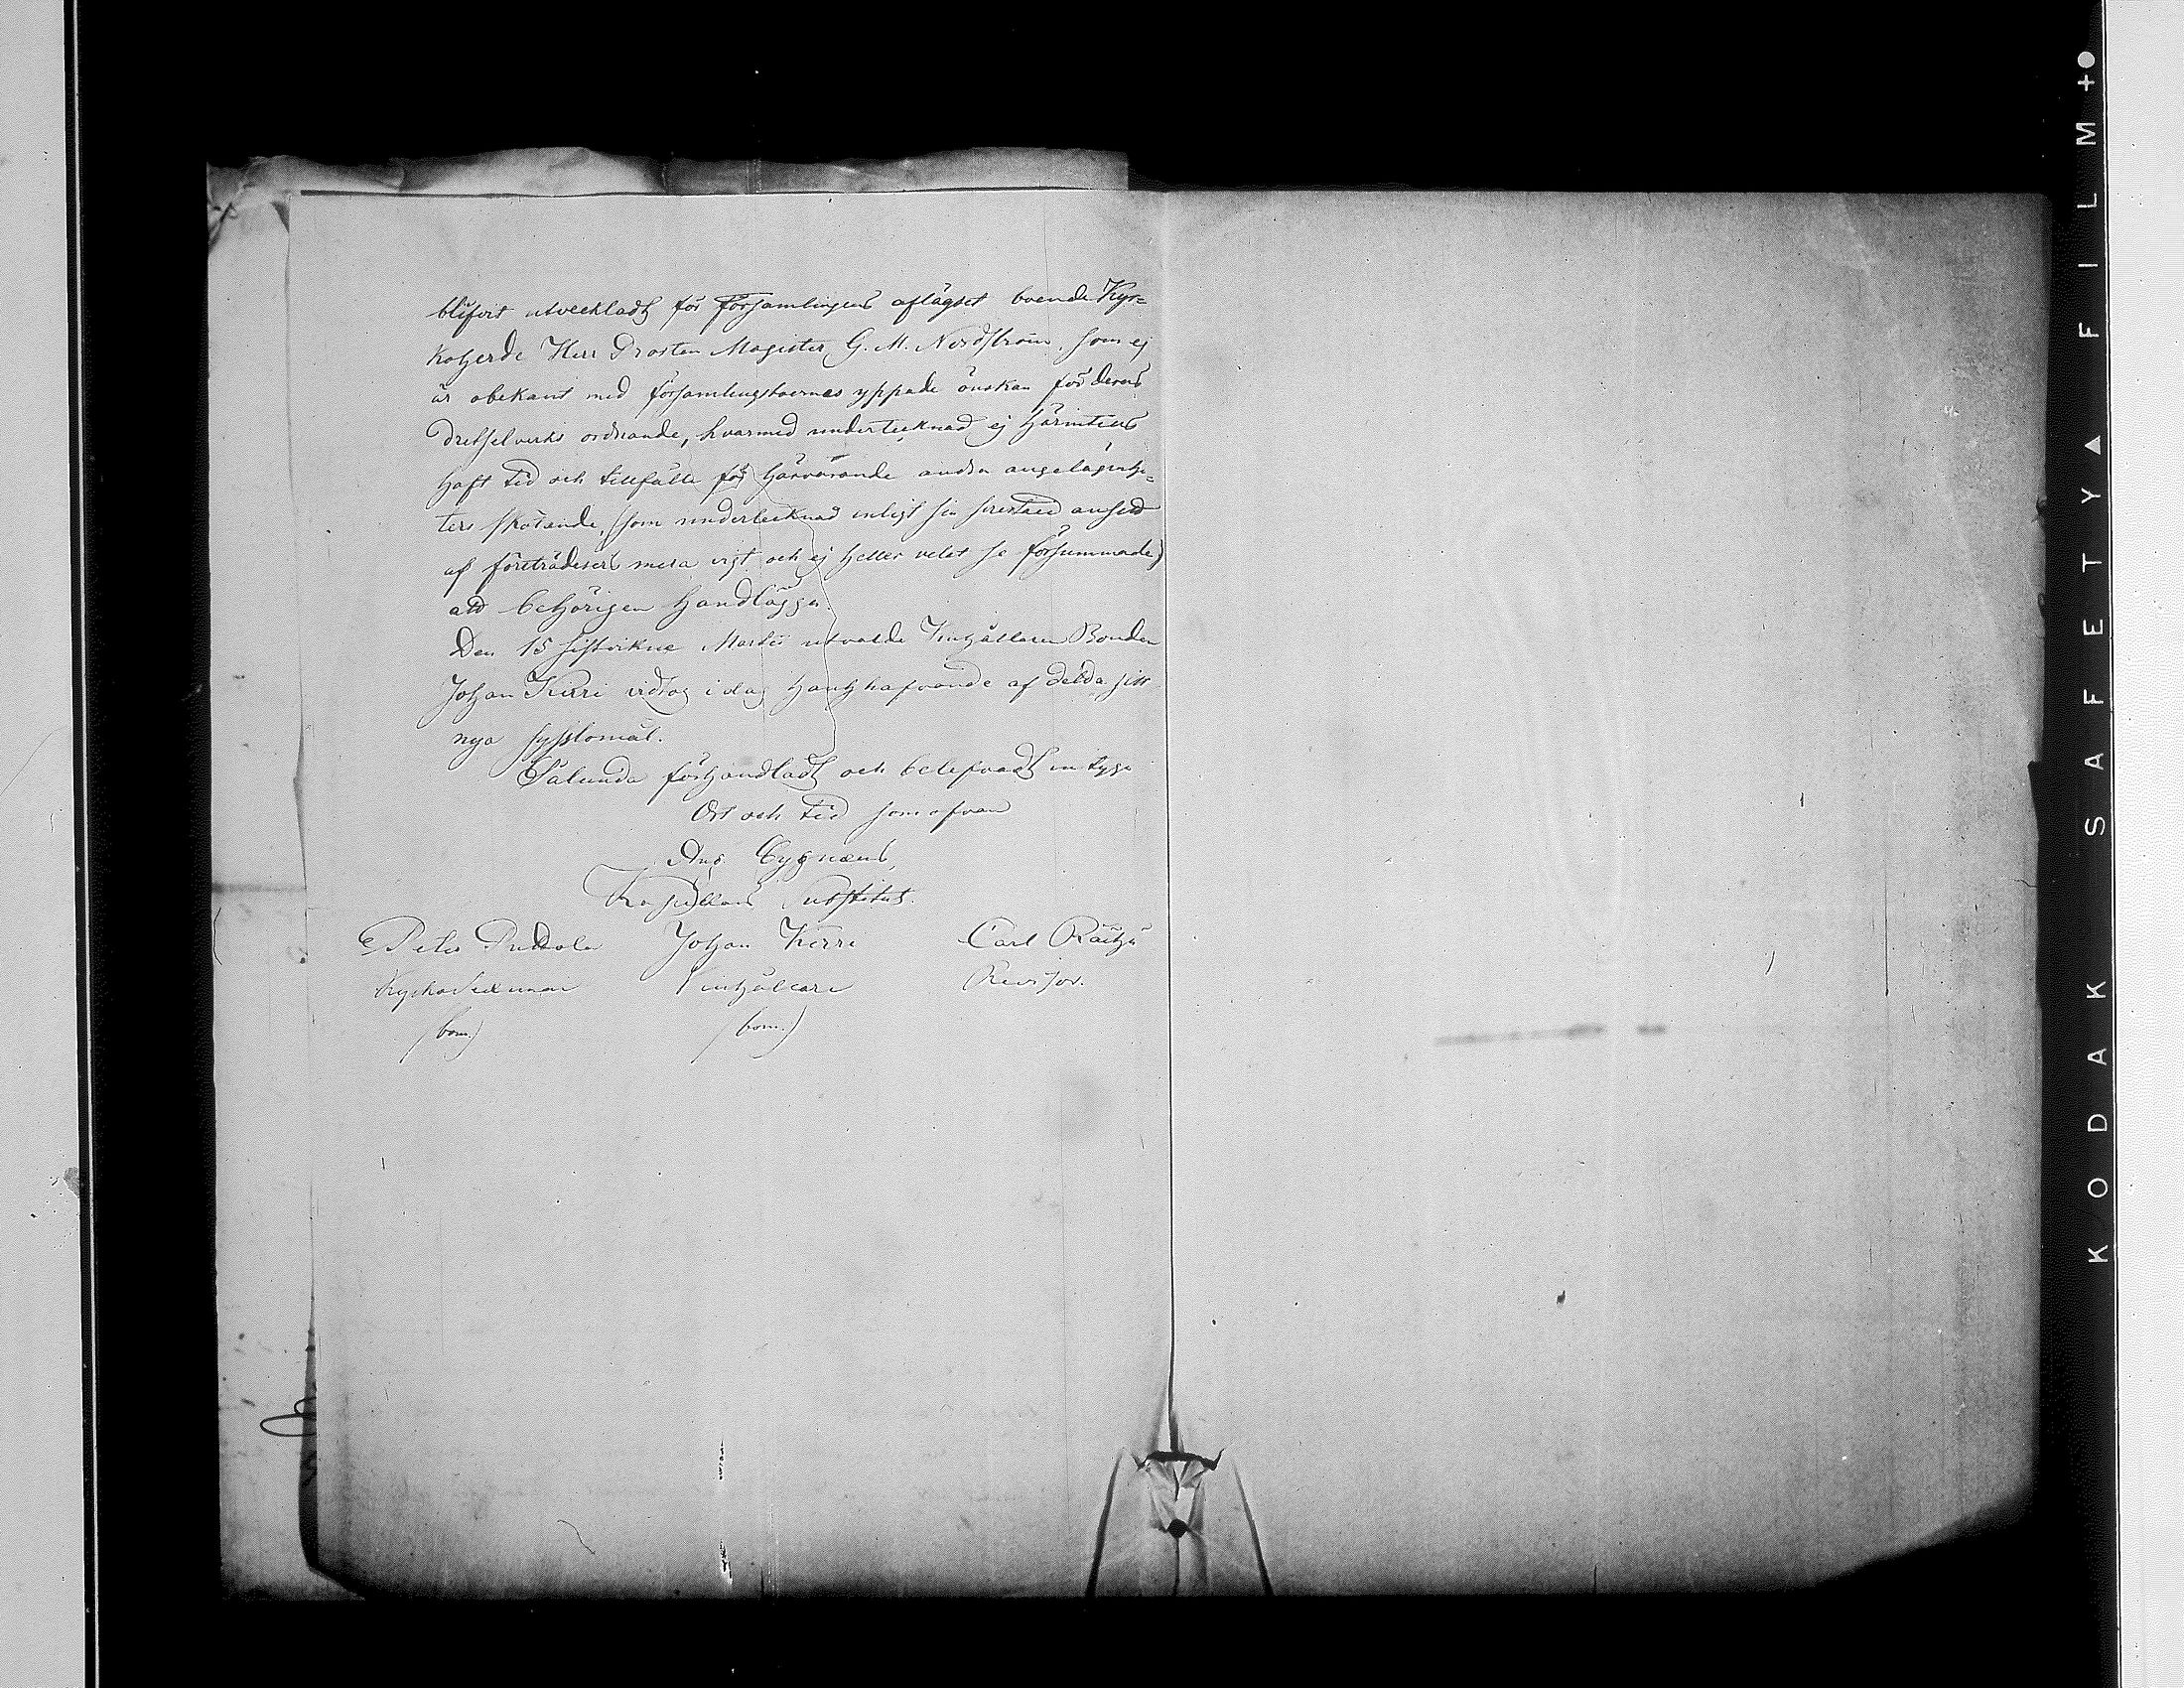 blifvit utveckladt för församlingens aflägset boende Kyr=
koherde Herr Prosten Magister G. M. Nordström, som ej
är obekant med församlingsboernas yppade önskan för deras
drätselverks ordnande, hvarmed undertecknad ej härintills
haft tid och tillfälle för härvarande andra angelägenhe=
ters skötande, (som undertecknad enligt sin ansedt
af företrädesvis mera vigt och ej heller velat se försummade)
att behörigen handlägga.
Den 15 sistvikne Martii utvalde Vinhållaren Bonden
Johan Kirri vidtog i dag handhafvande af detta sitt
nya sysslomål.
Sålunda förhandladt och belefvadt intyga
Ort och tid som ofvan
Aug. Cygnæus,
Kapellans Substitut.
Peter Johan Kirri Carl Räihä
Kyrkovärd Vinhållare Revisor.
(bom.) (bom.)
KODAK SAFETY FILM